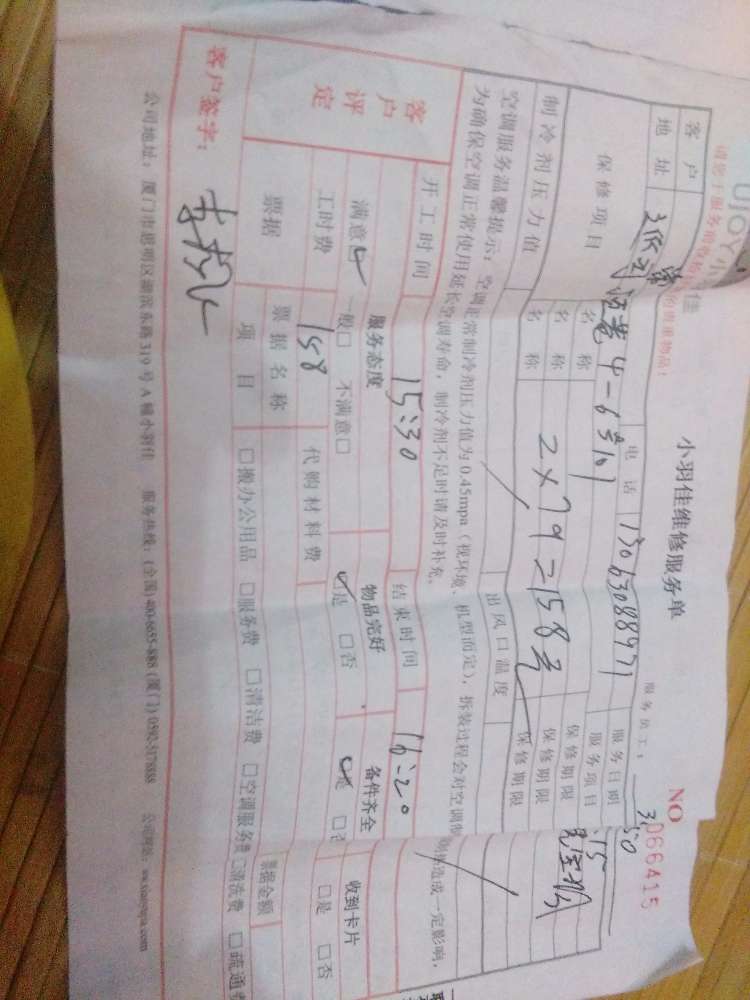 UJOY小
佳
请您于服务前
的贵重物品！
小羽佳维修服务单
NO 066415
服务员工：3150
客户
电话 13063088971
服务日期 15
地址
4-6
服务项目
保修项目
名称
保修期限
名称
保修期限
名称 2×79=158元
保修期限
制冷剂压力值
出风口温度
空调服务温馨提示：空调正常制冷剂压力值为0.45mpa（视环境、机型而定），拆装过程会对空调制
造成一定影响，
为确保空调正常使用延长空调寿命，制冷剂不足时请及时补充。
开工时间 15:30 结束时间 16:20
客户评定
服务态度 物品完好 备件齐全 收到卡片
满意☑ 一般□ 不满意□ ☑是 □否 ☑是 □否 □是 □否
工时费 158 代购材料费
票据 票据名称 票据金额
项目 □搬办公用品 □服务费 □清洁费 □空调服务费 □清洗费 □疏通费
客户签字：
公司地址：厦门市思明区湖滨东路319号A幢小羽佳 服务热线：(全国)400-6655-888 (厦门)0592-5178888 公司网址：